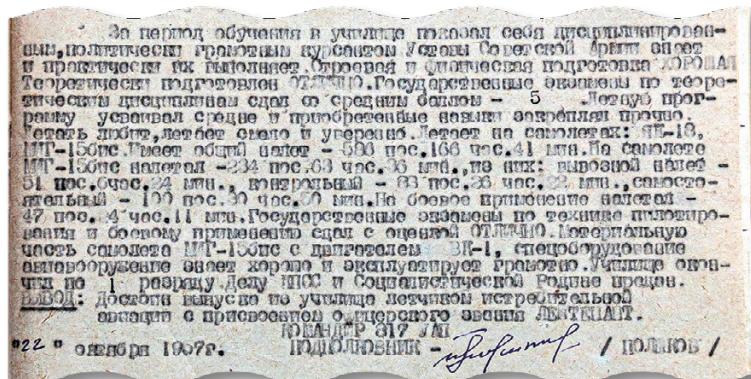 За период обучения в училище показал себя дисциплинирован-
ным,политически грамотным курсантом Уставы Советской Армии знает
и практически их выполняет.Строевая и физическая подготовка ХОРОШАЯ
Теоретически подготовлен ОТЛИЧНО.Государственные экзамены по теоре-
тическим дисциплинам сдал со средним баллом - 5 .Летную прог-
рамму усваивал средне и приобретенные навыки закреплял прочно.
Летать любит,летает смело и уверенно.Летает на самолетах: ЯК-18,
МИГ-15бис.Имеет общий налет - 586 пос.166 час.41 мин.На самолете
МИГ-15бис налетал -234 пос.63 час. мин.,из них: вывозной налет -
51 пос.6час.24 мин., контрольный - 83 пос.26 час. мин.,самосто-
ятельный - 100 пос.30 час. мин.На боевое применение налетал -
47 пос. час.11 мин.Государственные экзамены по технике пилотиро-
вания и боевому применению сдал с оценкой ОТЛИЧНО.Материальную
часть самолета МИГ-15бис с двигателем ВК-1, спецоборудование
авиавооружение знает хорошо и эксплуатирует грамотно.Училище окон-
чил по 1 разряду.Делу КПСС и Социалистической Родине предан.
ВЫВОД: Достоин выпуска из училища летчиком истребительной
авиации с присвоением офицерского звания ЛЕЙТЕНАНТ.
КОМАНДИР 317 УАП
"22" октября 1957г. ПОДПОЛКОВНИК - / ПОЛЯКОВ /